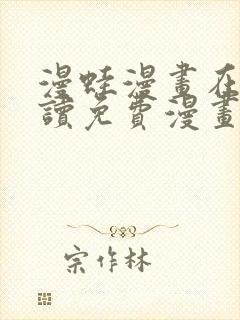 漫蛙漫畫在
讀免費漫畫
宗作林